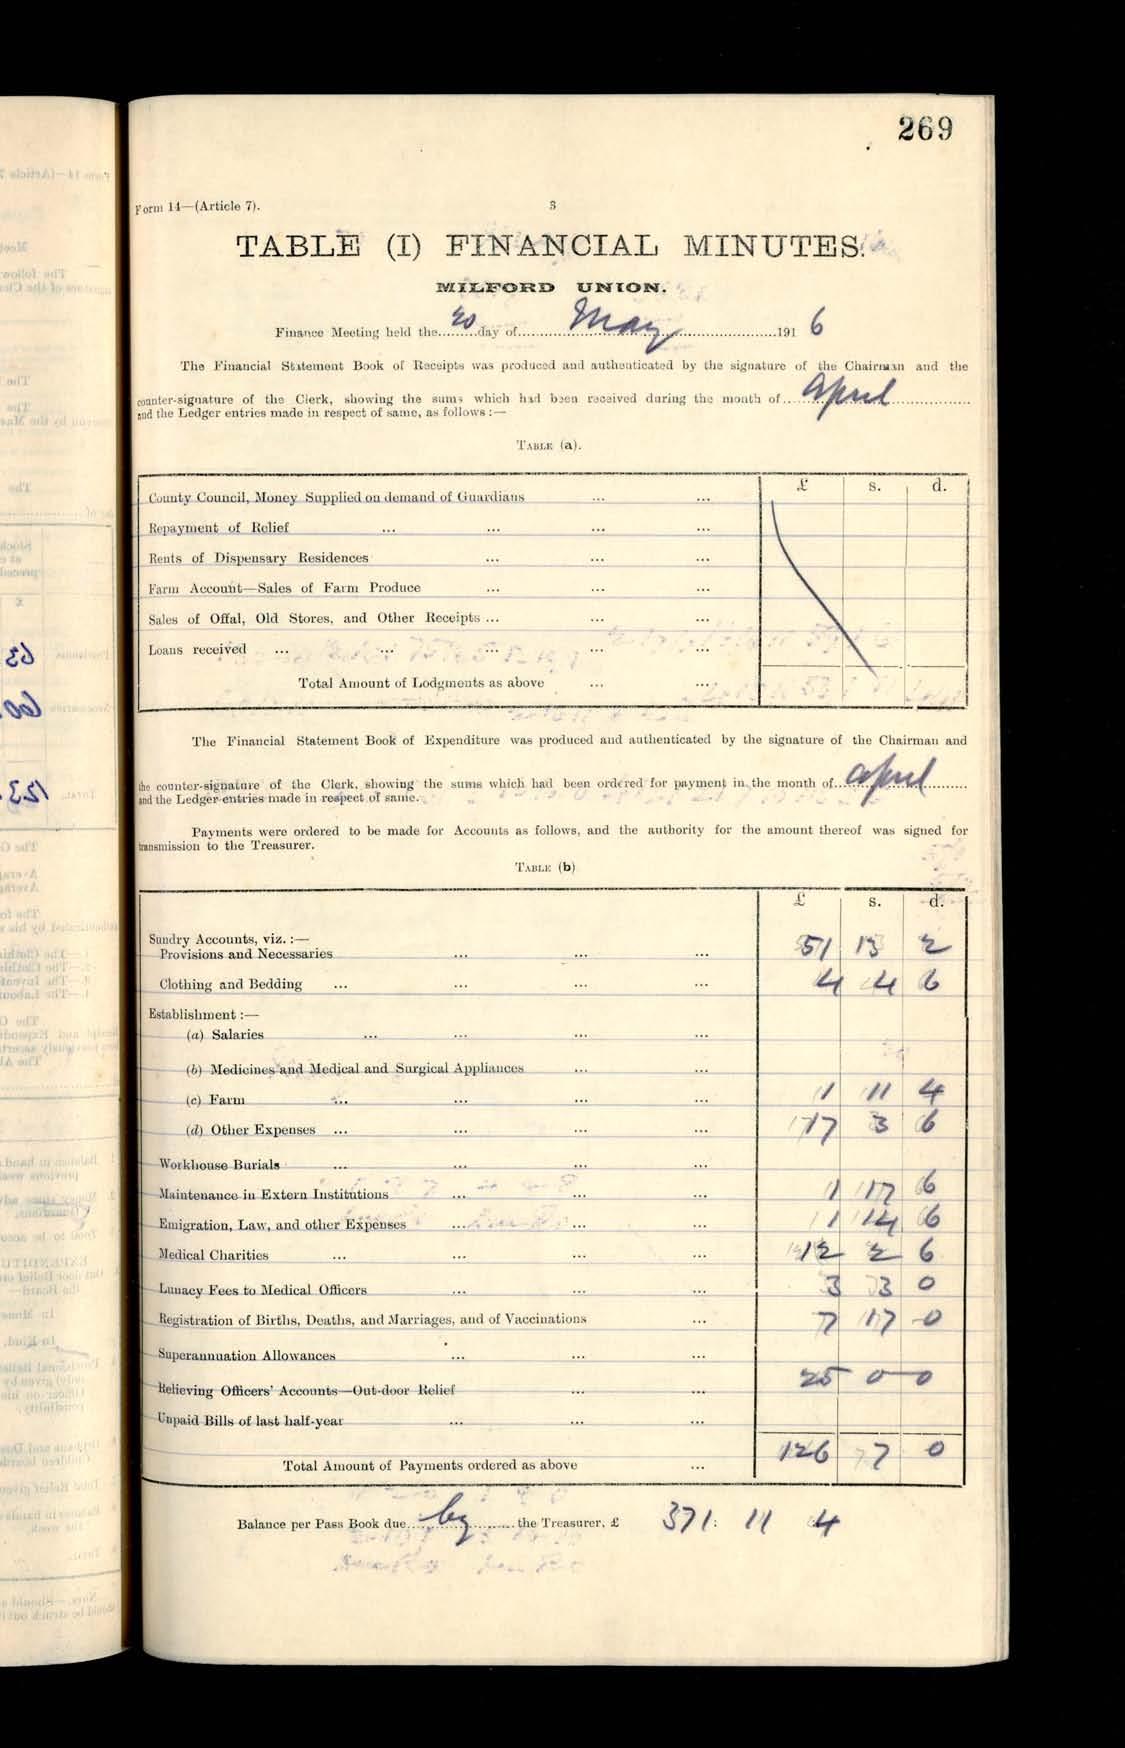 269
Form 14—(Article 7).
3
TABLE (I) FINANCIAL MINUTES.
MILFORD UNION.
Finance Meeting held the 20 day of May 1916
The Financial Statement Book of Receipts was produced and authenticated by the signature of the Chairman and the
counter-signature of the Clerk, showing the sums which had been received during the month of April
and the Ledger entries made in respect of same, as follows :—
TABLE (a).
£ s. d.
County Council, Money Supplied on demand of Guardians ... ...
Repayment of Relief ... ... ... ...
Rents of Dispensary Residences ... ... ...
Farm Account—Sales of Farm Produce ... ... ...
Sales of Offal, Old Stores, and Other Receipts ... ... ...
Loans received ... ... ... ... ...
Total Amount of Lodgments as above ... ...
The Financial Statement Book of Expenditure was produced and authenticated by the signature of the Chairman and
the counter-signature of the Clerk, showing the sums which had been ordered for payment in the month of April
and the Ledger entries made in respect of same.
Payments were ordered to be made for Accounts as follows, and the authority for the amount thereof was signed for
transmission to the Treasurer.
TABLE (b)
£ s. d.
Sundry Accounts, viz. :—
Provisions and Necessaries ... ... ... 51 13 2
Clothing and Bedding ... ... ... ... 4 4 6
Establishment :—
(a) Salaries ... ... ... ...
(b) Medicines and Medical and Surgical Appliances ... ...
(c) Farm ... ... ... ... 1 11 4
(d) Other Expenses ... ... ... ... 17 3 6
Workhouse Burials ... ... ... ...
Maintenance in Extern Institutions ... ... ... 1 17 6
Emigration, Law, and other Expenses ... ... ... 1 14 6
Medical Charities ... ... ... ... 12 2 6
Lunacy Fees to Medical Officers ... ... ... 3 3 0
Registration of Births, Deaths, and Marriages, and of Vaccinations ... 7 17 0
Superannuation Allowances ... ... ...
Relieving Officers' Accounts—Out-door Relief ... ... 25 0 0
Unpaid Bills of last half-year ... ... ...
Total Amount of Payments ordered as above ... 126 7 0
Balance per Pass Book due by the Treasurer, £ 371: 11 4